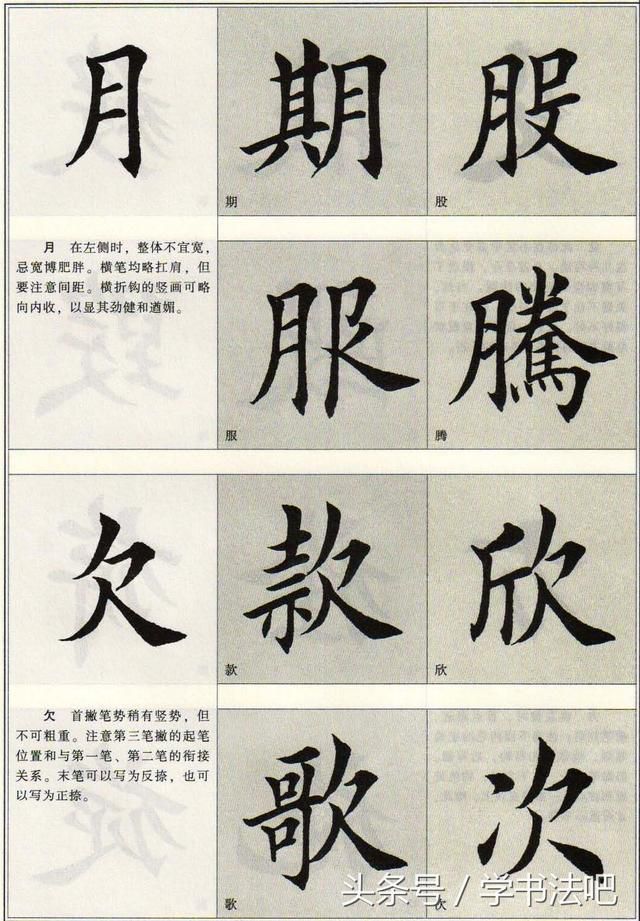 月 期 股
期 股
月 在左侧时，整体不宜宽，
忌宽博肥胖。横笔均略扛肩，但
要注意间距。横折钩的竖画可略
向内收，以显其劲健和遒媚。
服 騰
服 腾
欠 款 欣
款 欣
欠 首撇笔势稍有竖势，但
不可粗重。注意第三笔撇的起笔
位置和与第一笔、第二笔的衔接
关系。末笔可以写为反捺，也可
以写为正捺。
歌 次
歌 次
头条号 / 学书法吧